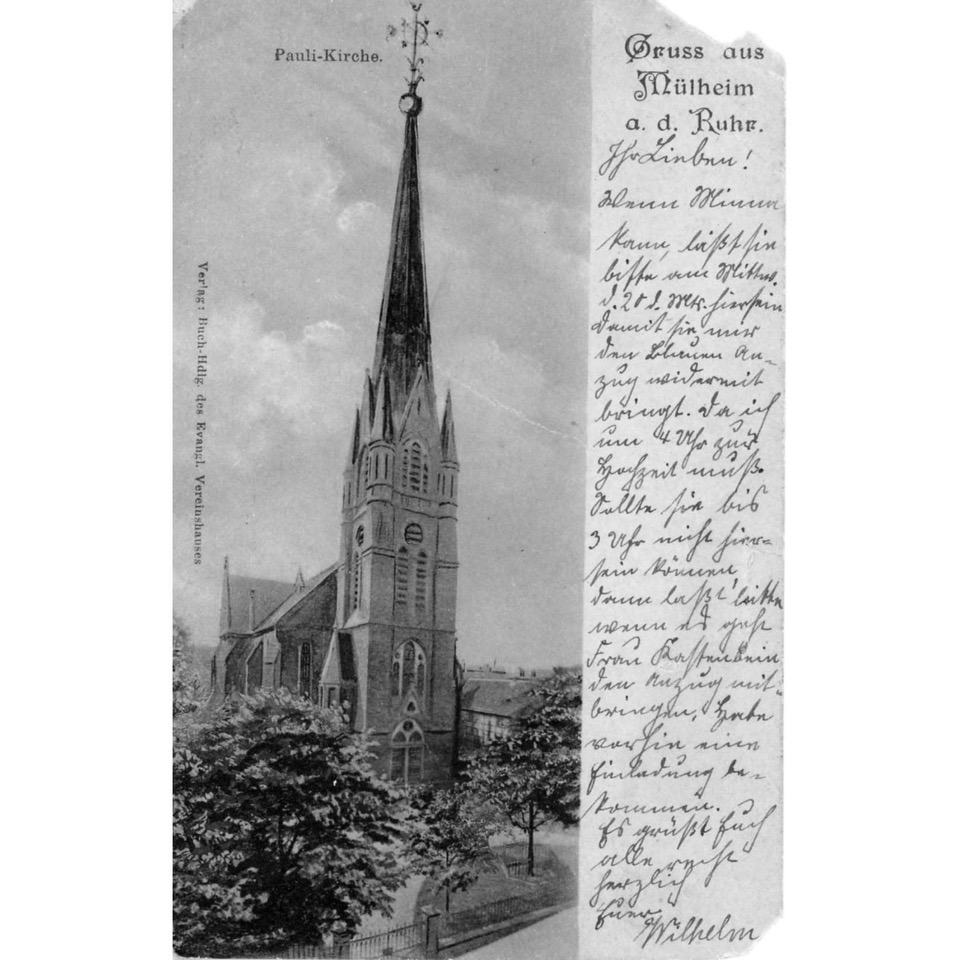 Pauli-Kirche.
Verlag: Buch-Hdlg. des Evangl. Vereinshauses
Gruss aus
Mülheim
a. d. Ruhr.
Ihr Lieben!
Wenn Minna
kann, laßt sie
bitte am Mittw.
d. 20 d. Mts. hiersein
damit sie mir
den blauen An-
zug widermit
bringt. Da ich
um 4 Uhr zur
Hochzeit muß.
Sollte sie bis
3 Uhr nicht hier-
sein können,
dann laßt bitte
wenn es geht
Frau Kastenbein
den Anzug mit-
bringen. Habe
vorhin eine
Einladung be-
kommen.
Es grüßt Euch
alle recht
herzlich
Euer
Wilhelm